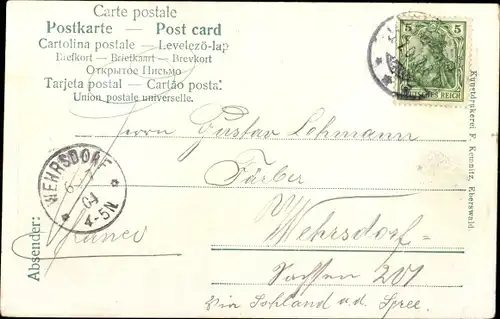 Carte postale
Postkarte — Post card
Cartolina postale — Levelező-lap
Brefkort — Briefkaart — Brevkort
Открытое Письмо
Tarjeta postal — Cartão postal
Union postale universelle.
5 5
DEUTSCHES REICH
Kunstdruckerei F. Kemnitz, Eberswald.
Herrn Gustav Lohmann
Färber
WEHRSDORF
6
04
4-5N
Wehrsdorf
Sachsen 201
Via Sohland a.d. Spree.
Absender:
Franco